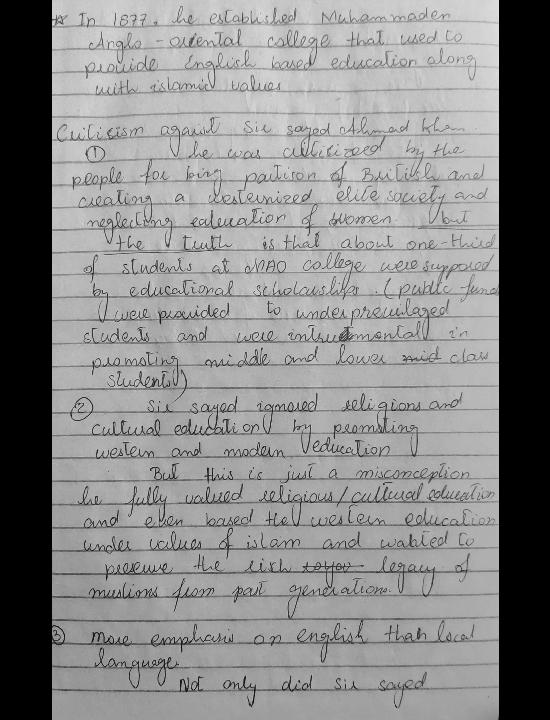 * In 1877, he established Muhammaden
Anglo-oriental college that used to
provide English based education along
with islamic values
Criticism against Sir sayed Ahmad khan.
① he was criticized by the
people for being partison of British and
creating a westernized elite society and
neglecting education of women. but
the truth is that about one-third
of students at MAO college were suppoed
by educational scholarships. (public fund
were provided to underprewilaged
students and were intrumental in
promoting middle and lower mid class
students)
② Sir sayed ignored religions and
cultural education by promoting
western and modern education
But this is just a misconception
he fully valued religious/cultural education
and even based the western education
under values of islam and wanted to
preserve the rich legacy of
muslims from past generations.
③ more emphasis on english than local
language.
Not only did Sir sayed